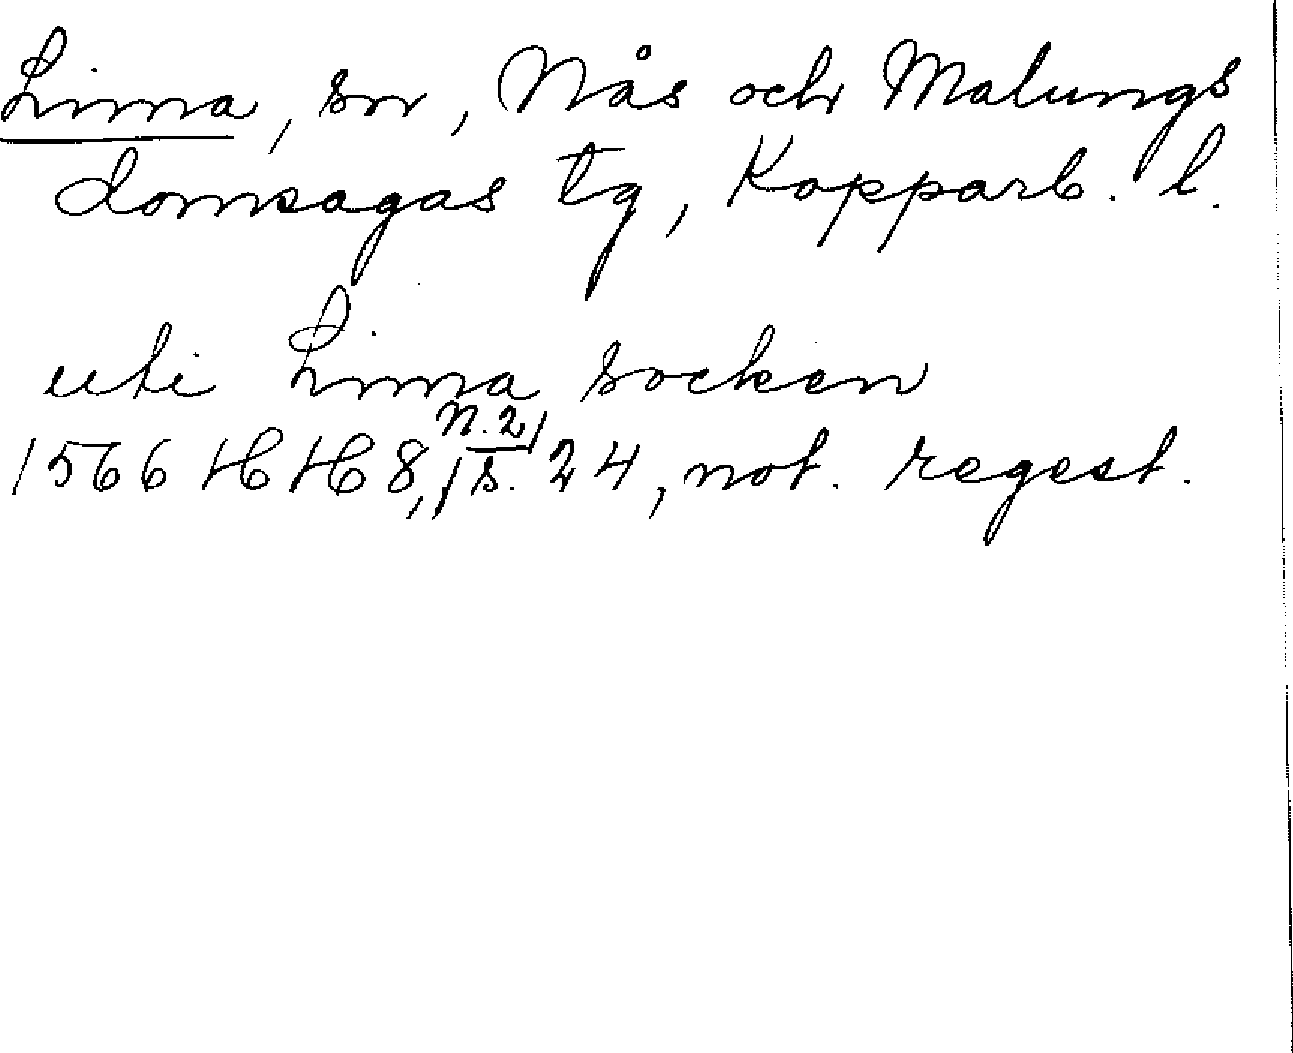 Lima, sn, Nås och Malungs
domsagas tg, Kopparb. l.
uti Lima socken
N. 2
1566 HH 8, s. 24, not. regest.